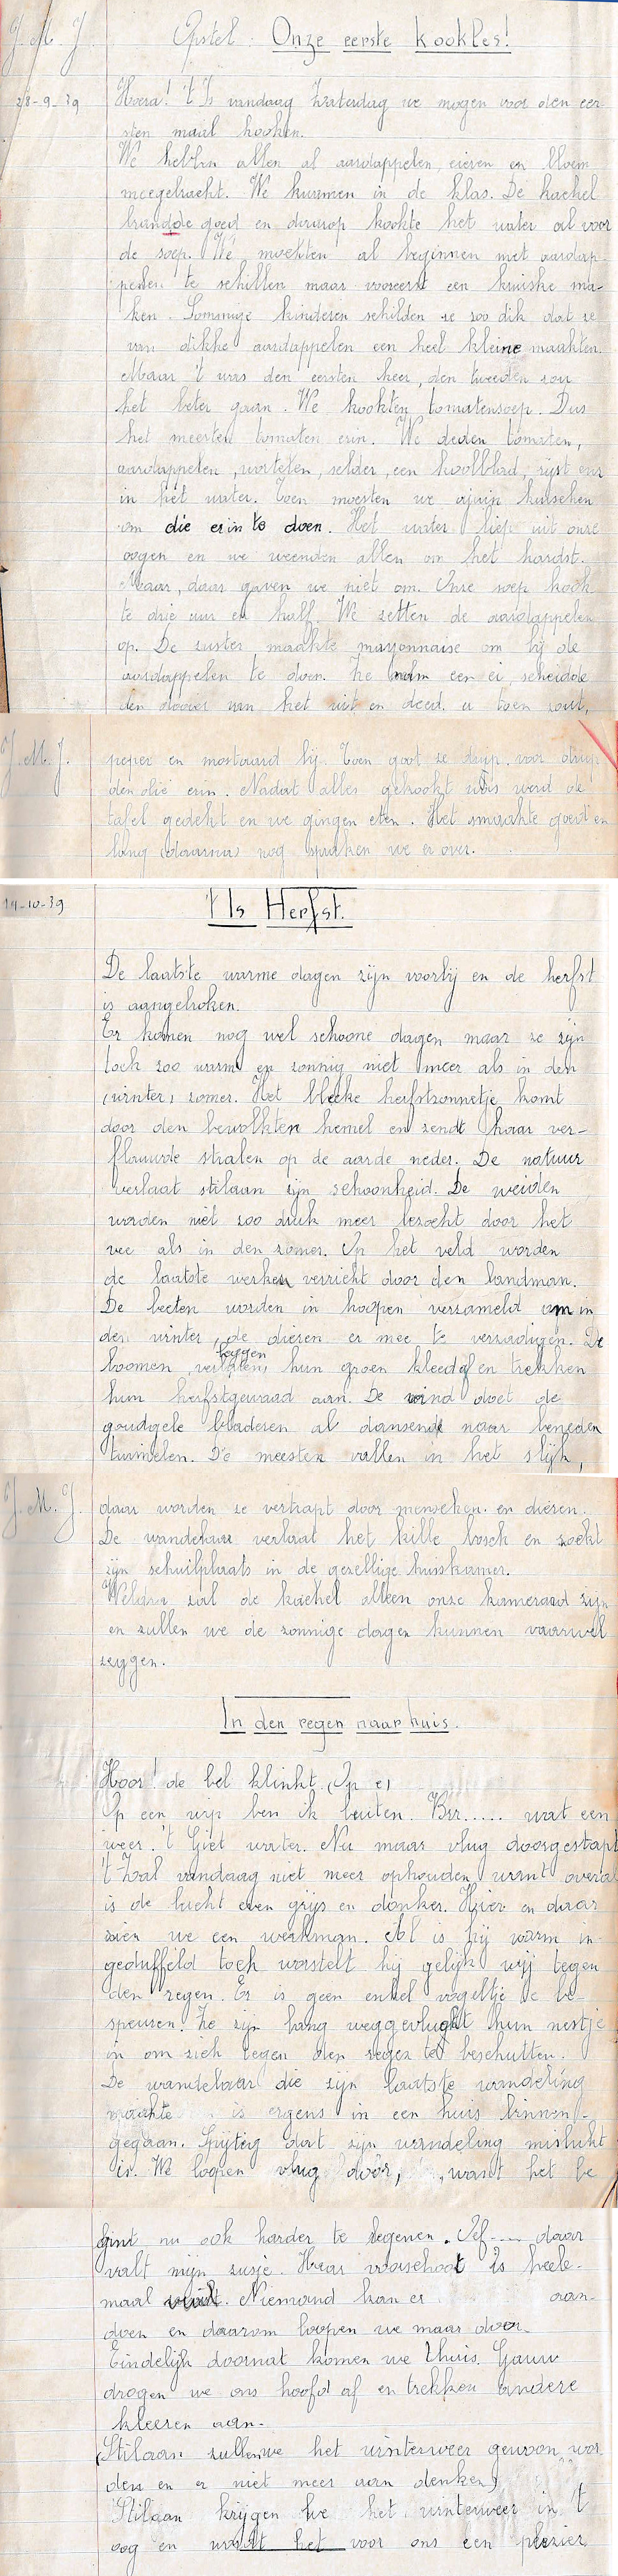 J. M. J. Opstel : Onze eerste kookles!
28-9-39 Hoera! 't Is vandaag Zaterdag we mogen voor den eer-
sten maal kooken.
We hebben allen al aardappelen, eieren en bloem
meegebracht. We kwamen in de klas. De kachel
brandde goed en daarop kookte het water al voor
de soep. We mochten al beginnen met aardap-
pelen te schillen maar vooreerst een kruiske ma-
ken. Sommige kinderen schilden ze zoo dik dat ze
van dikke aardappelen een heel kleine maakten.
Maar 't was den eersten keer, den tweeden zou
het beter gaan. We kookten tomatensoep. Dus
het meesten tomaten erin. We deden tomaten,
aardappelen, wortelen, selder, een koolblad, rijst enz
in het water. Toen moesten we ajuin kuischen
om die erin te doen. Het water liep uit onze
oogen en we weenden allen om het hardst.
Maar, daar gaven we niet om. Onze soep kook-
te drie uur en half. We zetten de aardappelen
op. De zuster maakte mayonnaise om bij de
aardappelen te doen. Ze nam een ei, scheidde
den dooier van het wit en deed er toen zout,
J. M. J. peper en mostaard bij. Toen goot ze drup voor drup
den olie erin. Nadat alles gekookt was werd de
tafel gedekt en we gingen eten. Het smaakte goed en
lang (daarna) nog spraken we er over.
14-10-39 't Is Herfst.
De laatste warme dagen zijn voorbij en de herfst
is aangebroken.
Er komen nog wel schoone dagen maar ze zijn
toch zoo warm en zonnig niet meer als in den
(winter) zomer. Het bleeke herfstzonnetje komt
door den bewolkten hemel en zendt haar ver-
flauwde stralen op de aarde neder. De natuur
verlaat stilaan zijn schoonheid. De weiden
worden niet zoo druk meer bezocht door het
vee als in den zomer. Op het veld worden
de laatste werken verricht door den landman.
De beeten worden in hoopen verzameld om in
den winter, de dieren er mee te verzadigen. De
leggen
boomen (verlaten) hun groen kleed af en trekken
hun herfstgewaad aan. De wind doet de
goudgele bladeren al dansende naar beneden
tuimelen. De meesten vallen in het slijk,
J. M. J. daar worden ze vertrapt door menschen en dieren.
De wandelaar verlaat het kille bosch en zoekt
zijn schuilplaats in de gezellige huiskamer.
Weldra zal de kachel alleen onze kameraad zijn
en zullen we de zonnige dagen kunnen vaarwel
zeggen.
In den regen naar huis.
Hoor! de bel klinkt. (Op e)
Op een wip ben ik buiten. Brr..... wat een
weer. 't Giet water. Nu maar vlug doorgestapt
't Zal vandaag niet meer ophouden want overal
is de lucht even grijs en donker. Hier en daar
zien we een werkman. Al is hij warm in-
geduffeld toch worstelt hij gelijk wij tegen
den regen. Er is geen enkel vogeltje te be-
speuren. Ze zijn bang weggevlucht hun nestje
in om zich tegen den regen te beschutten.
De wandelaar die zijn laatste wandeling
maakte is ergens in een huis binnen-
gegaan. Spijtig dat zijn wandeling mislukt
is. We loopen vlug door, want het be
gint nu ook harder te regenen. Pef.... daar
valt mijn zusje. Haar voorschoot is heele-
maal vuil. Niemand kan er aan-
doen en daarom loopen we maar door.
Eindelijk doornat komen we thuis. Gauw
drogen we ons hoofd af en trekken andere
kleeren aan.
(Stilaan zullen we het winterweer gewoon wor
den en er niet meer aan denken)
Stilaan krijgen we het winterweer in 't
oog en wordt het voor ons een plezier